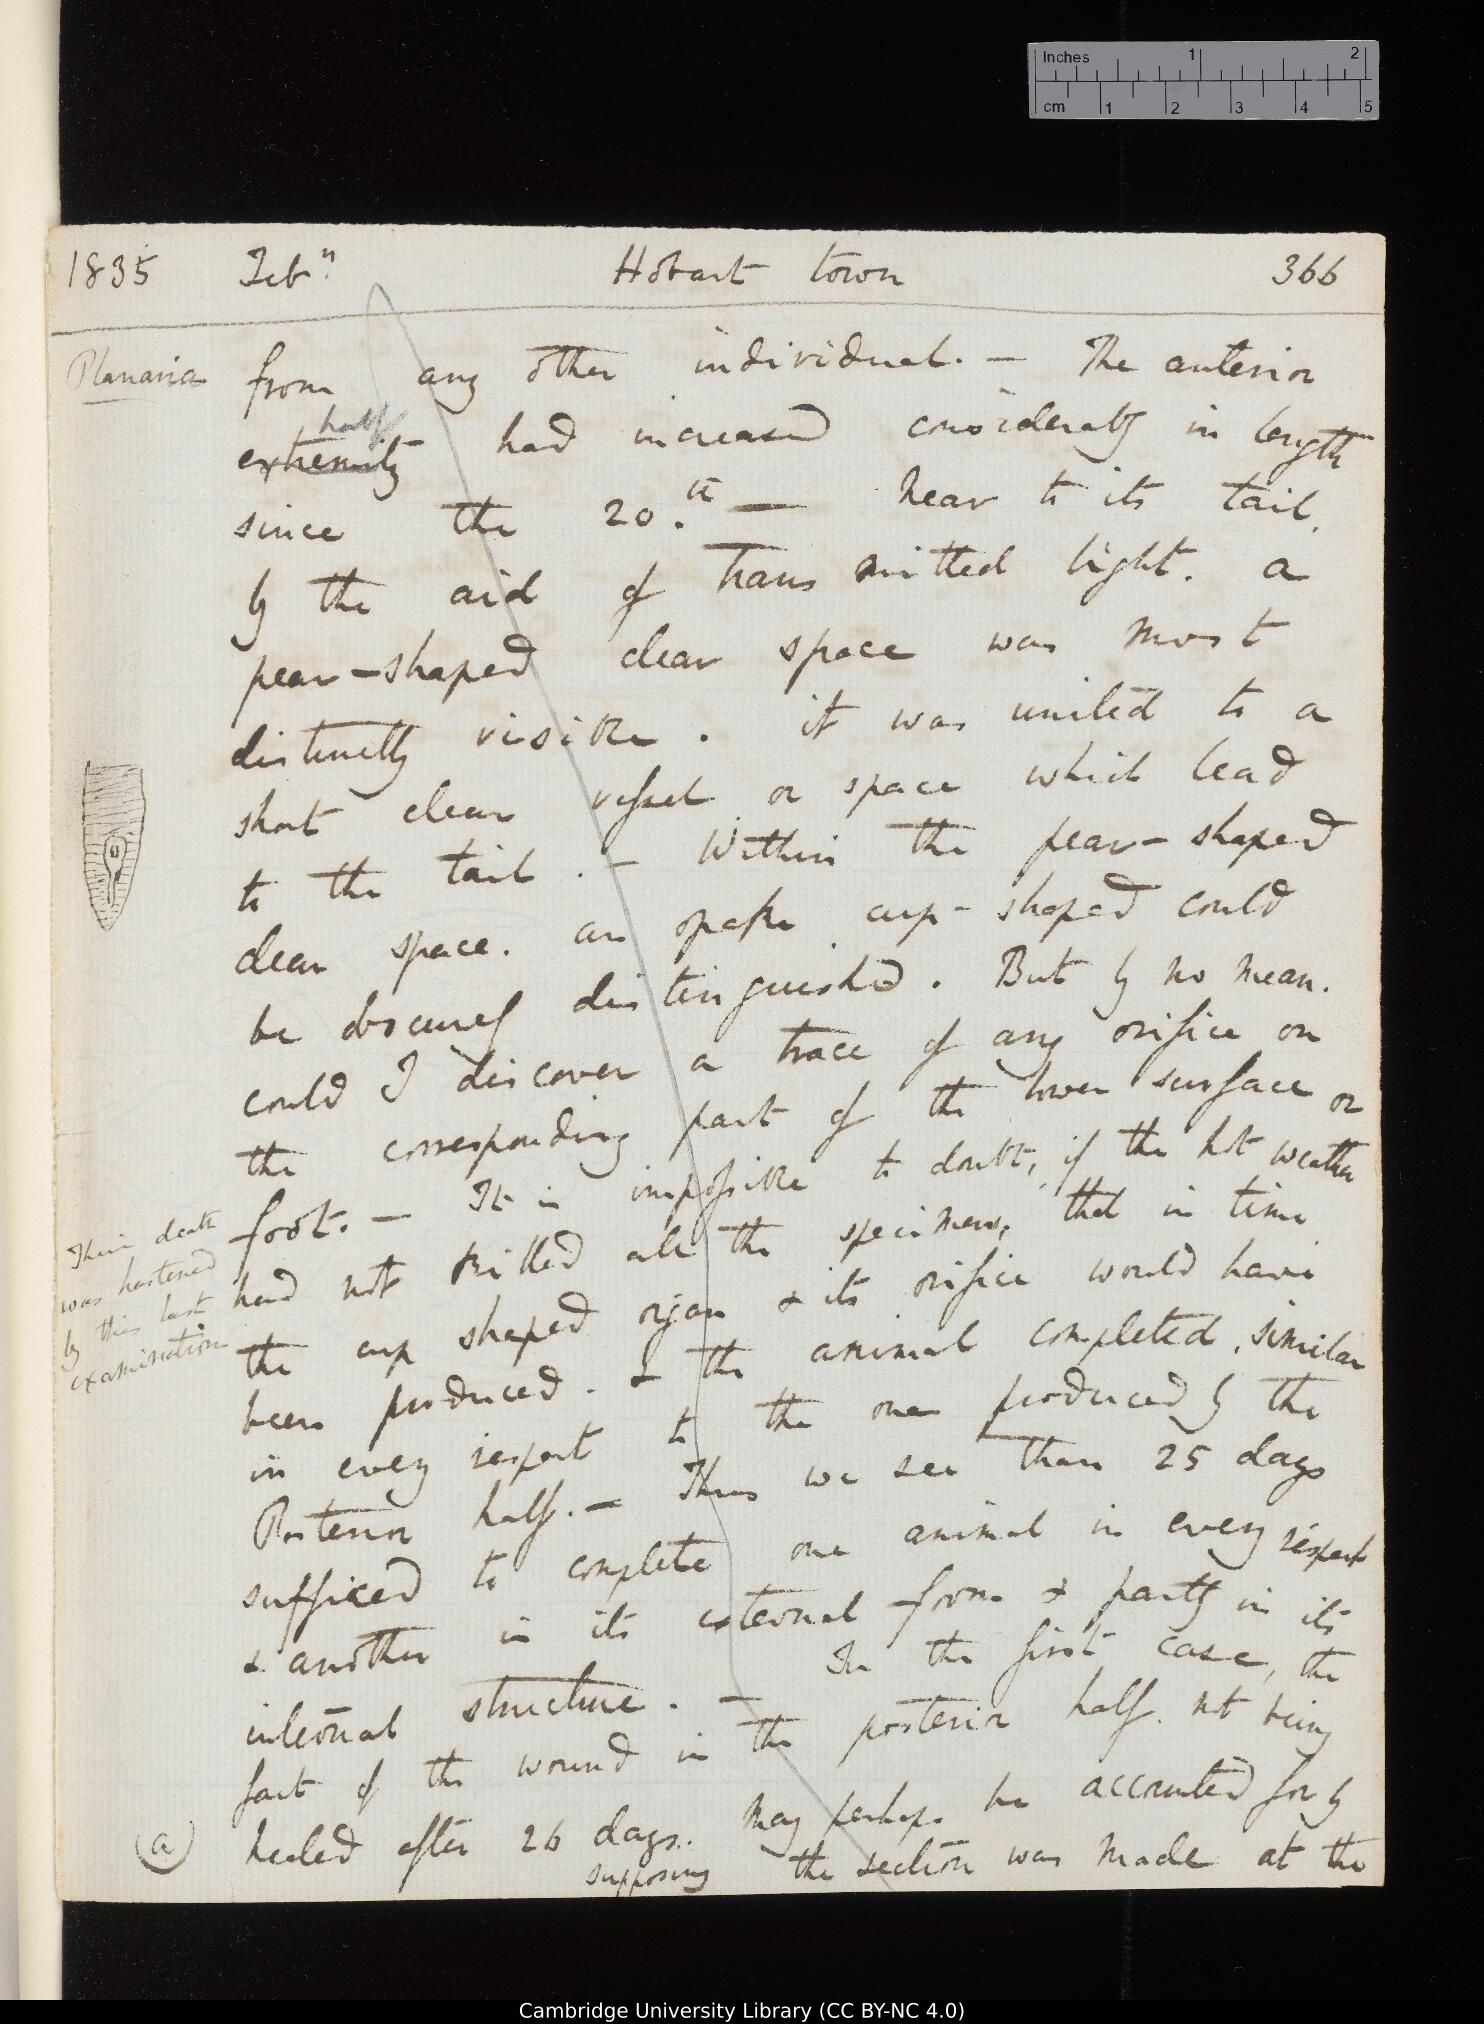 Inches 1 2
cm 1 2 3 4 5
1835 Feb.ry Hobart town 366
Planaria
from any other individual. — The anterior
half
extremity had increased considerably in length
since the 20.th — Near to its tail,
by the aid of transmitted light. a
pear-shaped clear space was most
distinctly visible. it was united to a
short clear vessel or space which lead
to the tail. — Within the pear-shaped
clear space. an opake cup-shaped could
be obscurely distinguished. But by no means
could I discover a trace of any orifice on
the corresponding part of the lower surface or
foot. — It is impossible to doubt, if the hot weather
had not killed all the specimens, that in time
the cup shaped organ & its orifice would have
been produced. & the animal completed, similar
in every respect to the one produced by the
Posterior half. — Thus we see than 25 days
sufficed to complete one animal in every respect
& another in its external form & partly in its
internal structure. — In the first case, the
fact of the wound in the posterior half. not being
healed after 26 days. may perhaps be accounted for by
supposing the section was made at the
Their death
was hastened
by this last
examination
(a)
Cambridge University Library (CC BY-NC 4.0)